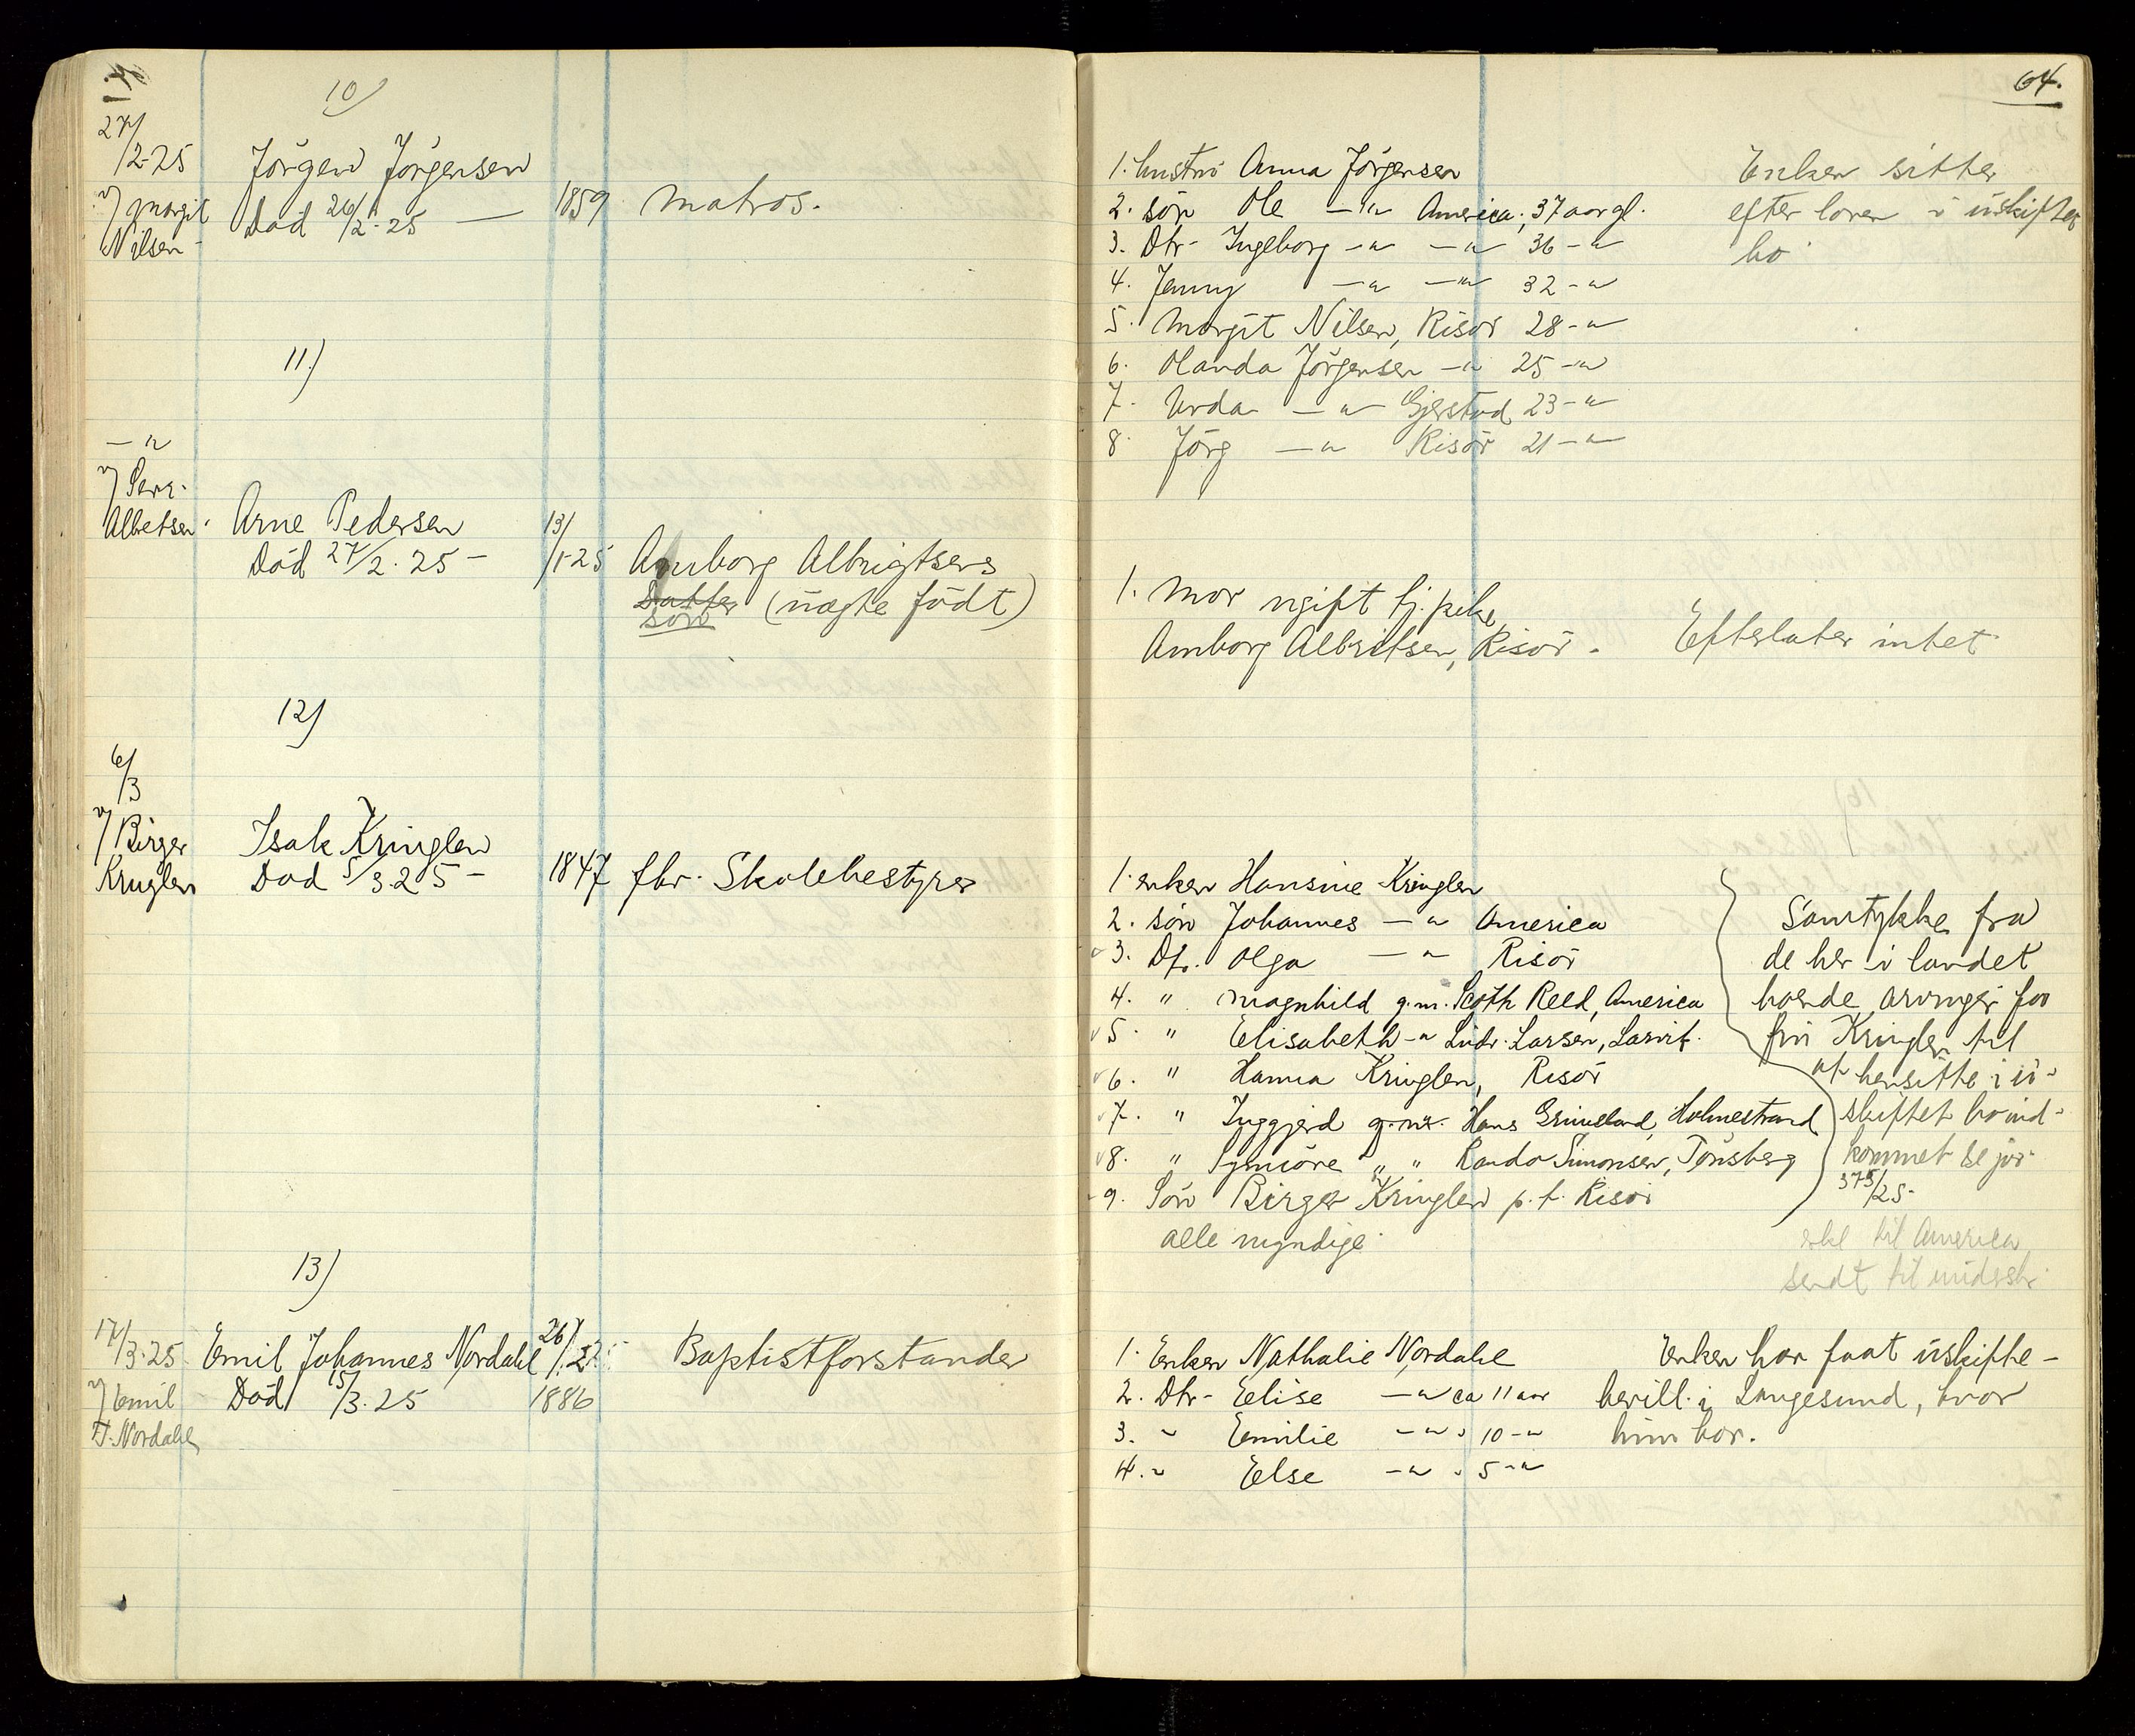 64.
10)
27/2-25
v/ Margit
Nilsen
Jörgen Jörgensen
Död 26/2-25 —
1859
Matros.
1. hustru Anna Jörgensen
2. sön Ole —"— America, 37 aar gl.
3. Dtr- Ingeborg —"— —"— 36 —"—
4. Jenny —"— —"— 32 —"—
5. Margit Nilsen, Risör 28 —"—
6. Olanda Jörgensen —"— 25 —"—
7. Urda —"— Gjerstad 23 —"—
8. Jörg —"— Risör 21 —"—
Enken sitter
efter loven i uskiftet
bo
11.)
—"—
Albretsen
Arne Pedersen
Död 27/2. 25 —
13/1-25
Amborg Albrigtsens
Datter (uægte födt)
sön
1. Mor ugift tj.pike
Amborg Albritsen, Risör.
Efterlater intet
12)
6/3
v/ Birger
Kringlen
Isak Kringlen
Död 5/3 25 —
1847
fhv. Skolebestyrer
1. enken Hansine Kringlen
2. sön Johannes —"— America
3. Dtr. Olga —"— Risör
4. " Magnhild g.m. Scoth Reed, America
5. " Elisabeth —"— Ludv. Larsen, Larvik.
6. " Hanna Kringlen, Risör
7. " Inggjerd g.m. Hans Grimeland, Holmestrand
8. " Synnöve " " Rando Simonsen, Tönsberg
9. Sön Birger Kringlen p.t. Risör
alle myndige
Samtykke fra
de her i landet
boende arvinger for
fru Kringlen til
at hensitte i u-
skiftet bo ind-
kommet se jnr
375/25.
skr til America
sendt til underskr.
13)
17/3-25
v/ Emil
T. Nordahl
Emil Johannes Nordahl
Död 15/3. 25
26/
1886
Baptistforstander
1. Enken Nathalie Nordahl
2. Dtr- Elise —"— ca 11 aar
3. " Emilie —"— " 10 —"—
4. " Else —"— " 5 —"—
Enken har faat uskifte-
bevill. i Langesund, hvor
hun bor.